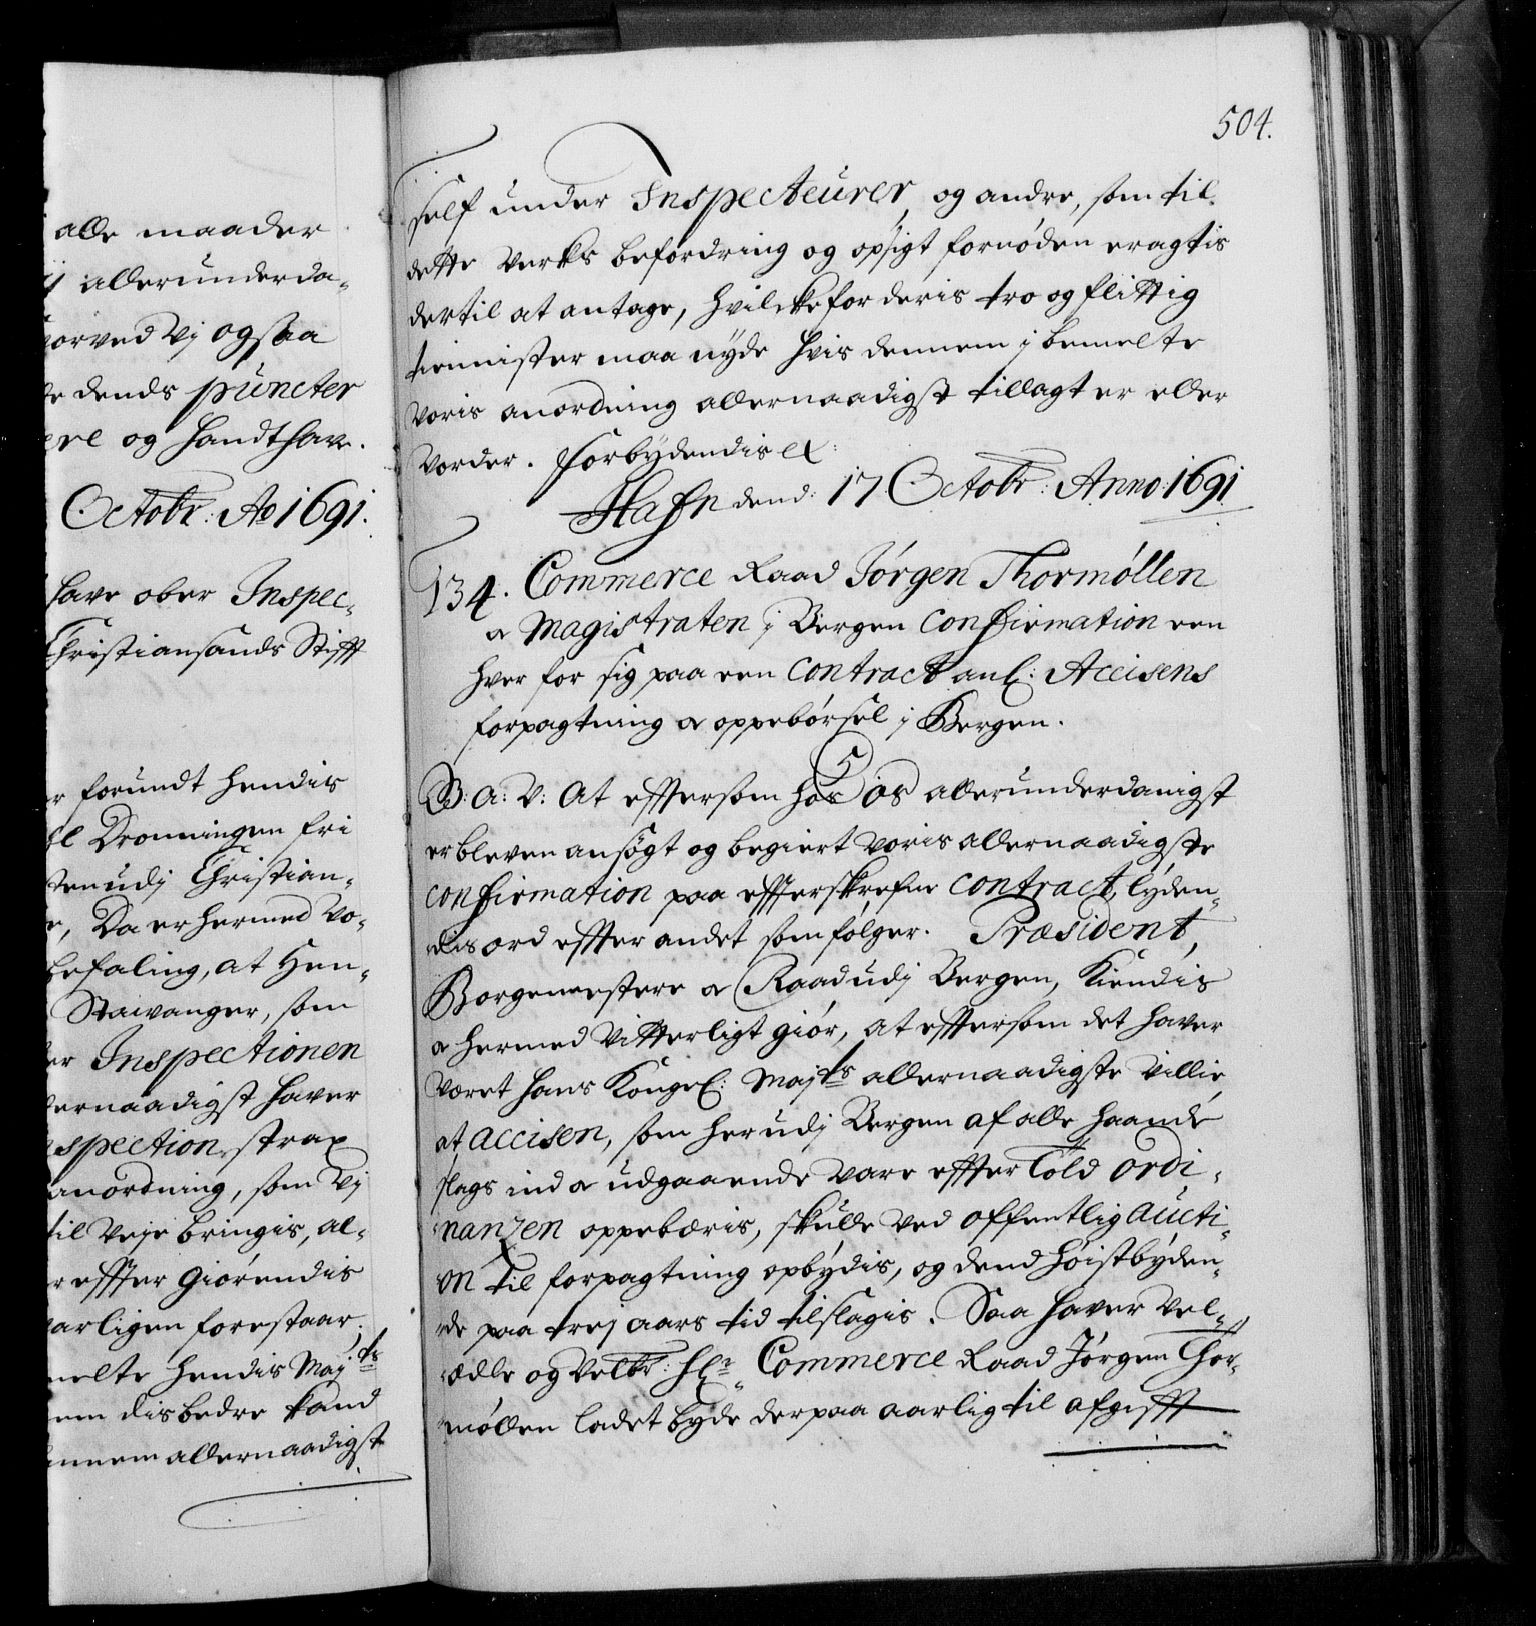 alle maader
allerunderda-
horved Vj ogsaa
dends puncter
og handthave.
Octobr: Ao 1691.
have ober Inspec-
Christiansands Stifft
forundt hendis
Dronningen fri
udj Christian-
Da er hermed Vo-
befaling, at Hen-
Stavanger, som
Inspectionen
allernaadigst haver
Inspection, strax
anordning, som Vj
til veje bringis, al-
effter giørendis
forestaar.
hendis Majts
dis bedre kand
allernaadigst
504.
self under Inspecteurer, og andre, som til
dette verks befordring og opsigt fornøden eragtis
dertil at antage, hvilcke for deris tro og flittig
tiennister maa nyde hvis dennem j bemelte
Voris anordning allernaadigst tillagt er eller
vorder. Forbydendis etc:
Hafn dend: 17 Octobr: Anno: 1691
134. Commerce Raad Jørgen Thormøllen
& Magistraten j Bergen Confirmation een
hver for sig paa een Contract anl: Accisens
forpagtning & oppebørsel j Bergen.
G: A: V: At effersom hos os allerunderdanigst
er bleven ansøgt og begiert voris allernaadigste
Confirmation paa effterskrefne Contract, lyden-
dis ord effter andet som følger. Præsident,
Borgemestere & Raad udj Bergen, Kiendis
& hermed vitterligt giør, at effersom det haver
været hans Kongel: Majts allernaadigste villie,
at Accisen, som her udj Bergen af alle haande
slags ind & udgaaende vare effter Told Ordi-
nanzen oppebæris, skulle ved offentlig Aucti-
on til forpagtning opbydis, og dend høistbyden-
de paa trej aars tid tilslagis. Saa haver Vel-
ædle og Velbr: Hr. Commerce Raad Jørgen Thor-
møllen ladet byde derpaa aarlig til afgifft